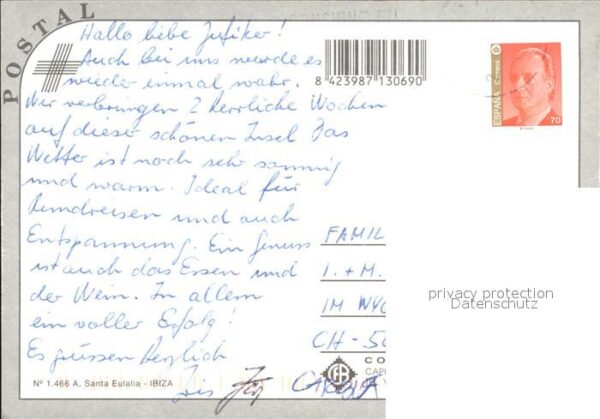 POSTAL
Hallo liebe Zufiker!
Auch bei uns wurde es
wieder einmal wahr.
Wir verbringen 2 herrliche Wochen
auf dieser schönen Insel. Das
Wetter ist noch sehr sonnig
und warm. Ideal für
Rundreisen und auch
Entspannung. Ein Genuss
ist auch das Essen und
der Wein. In allem
ein voller Erfolg!
Es grüssen herzlich
8 423987 130690
ESPAÑA
CORREOS
70
FAMIL
I. + M.
IM WYG
CH-50
privacy protection
Datenschutz
Nº 1.466 A, Santa Eulalia - IBIZA